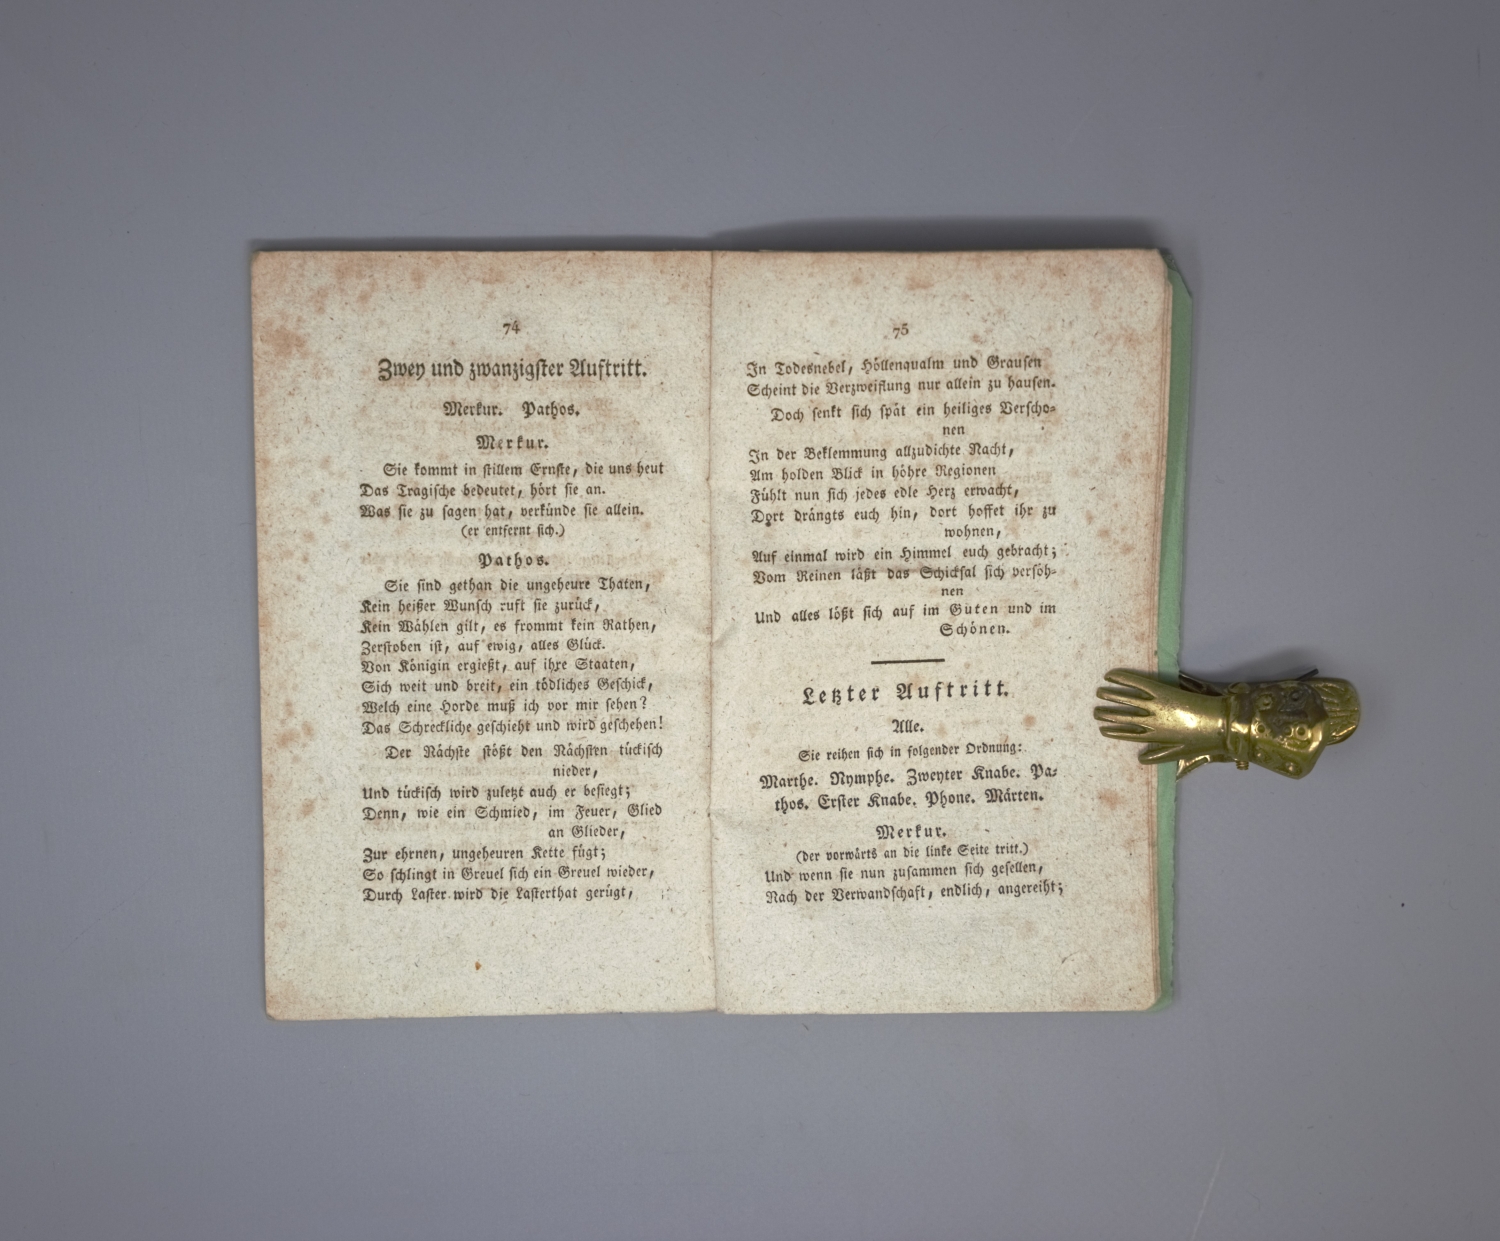 74
Zwey und zwanzigster Auftritt.
Merkur. Pathos.
Merkur.
Sie kommt in stillem Ernste, die uns heut
Das Tragische bedeutet, hört sie an.
Was sie zu sagen hat, verkünde sie allein.
(er entfernt sich.)
Pathos.
Sie sind gethan die ungeheure Thaten,
Kein heißer Wunsch ruft sie zurück,
Kein Wählen gilt, es frommt kein Rathen,
Zerstoben ist, auf ewig, alles Glück.
Von Königin ergießt, auf ihre Staaten,
Sich weit und breit, ein tödliches Geschick,
Welch eine Horde muß ich vor mir sehen?
Das Schreckliche geschieht und wird geschehen!
Der Nächste stößt den Nächsten tückisch
nieder,
Und tückisch wird zuletzt auch er besiegt;
Denn, wie ein Schmied, im Feuer, Glied
an Glieder,
Zur ehrnen, ungeheuren Kette fügt;
So schlingt in Greuel sich ein Greuel wieder,
Durch Laster wird die Lasterthat gerügt,
75
In Todesnebel, Höllenqualm und Grausen
Scheint die Verzweiflung nur allein zu hausen.
Doch senkt sich spät ein heiliges Verscho-
nen
In der Beklemmung allzudichte Nacht,
Am holden Blick in höhre Regionen
Fühlt nun sich jedes edle Herz erwacht,
Dort drängts euch hin, dort hoffet ihr zu
wohnen,
Auf einmal wird ein Himmel euch gebracht;
Vom Reinen läßt das Schicksal sich versöh-
nen
Und alles lößt sich auf im Guten und im
Schönen.
Letzter Auftritt.
Alle.
Sie reihen sich in folgender Ordnung:
Marthe. Nymphe. Zweyter Knabe. Pa-
thos. Erster Knabe. Phone. Märten.
Merkur.
(der vorwärts an die linke Seite tritt.)
Und wenn sie nun zusammen sich gesellen,
Nach der Verwandschaft, endlich, angereiht;